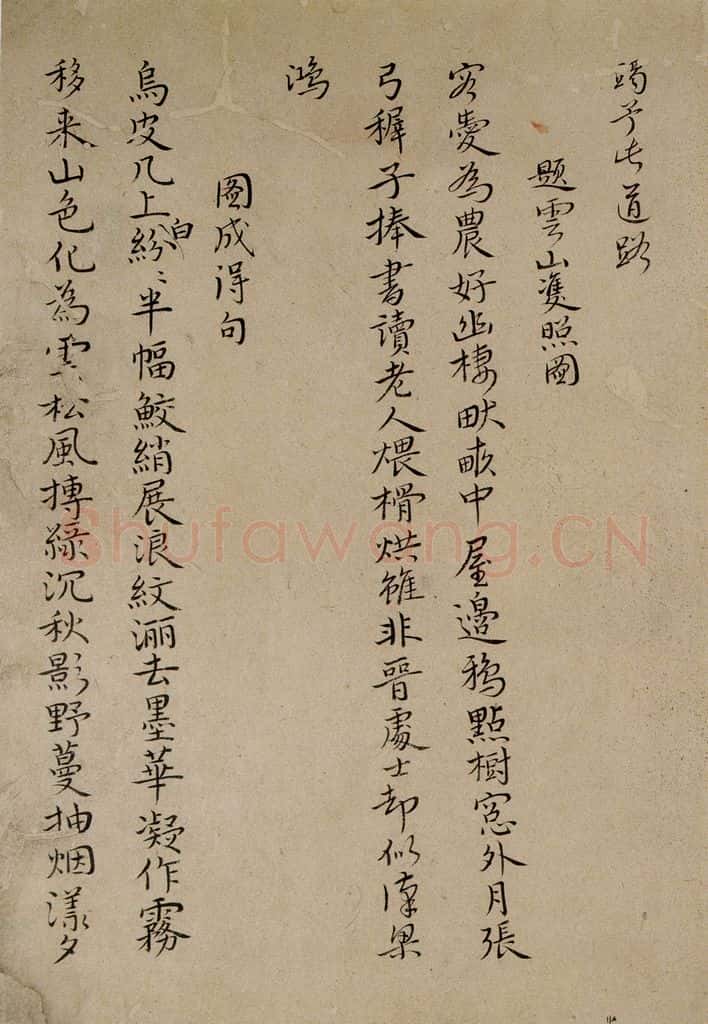 道路
題雲山雙照圖
愛為農好幽棲畎畝中屋邊鴉點樹窓外月張
弓穉子捧書讀老人煨榾烘雖非晉處士却似漢梁
鴻
圖成得句
烏皮几上白紛〻半幅鮫綃展浪紋灑去墨華凝作霧
移来山色化為雲松風摶綠沉秋影野蔓抽烟漾夕
Shufawang.CN